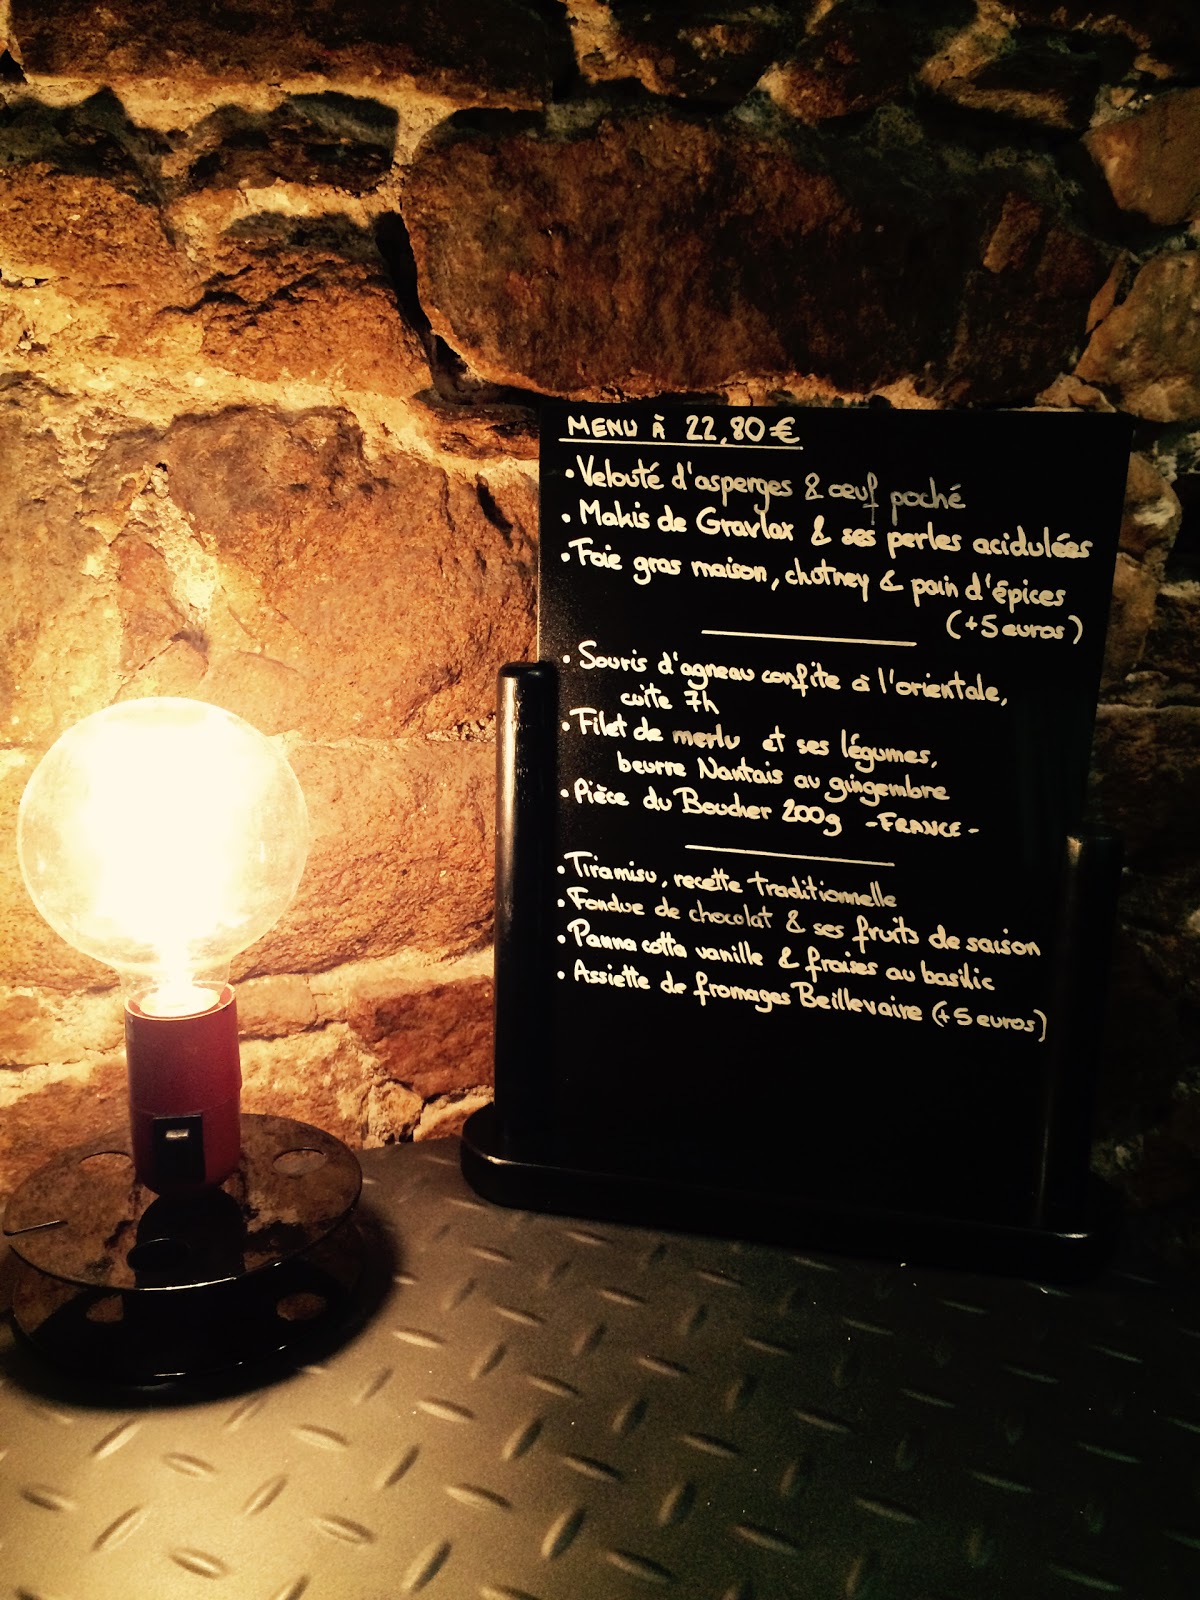 MENU À 22,80 €
• Velouté d'asperges & œuf poché
• Makis de Gravlax & ses perles acidulées
• Foie gras maison, chutney & pain d'épices
(+5 euros)
• Souris d'agneau confite à l'orientale,
cuite 7h
• Filet de merlu et ses légumes,
beurre Nantais au gingembre
• Pièce du Boucher 200g - FRANCE -
• Tiramisu, recette traditionnelle
• Fondue de chocolat & ses fruits de saison
• Panna cotta vanille & fraises au basilic
• Assiette de fromages Beillevaire (+5 euros)